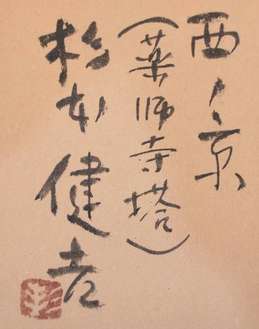 西ノ京
(薬師寺塔)
杉本健吉